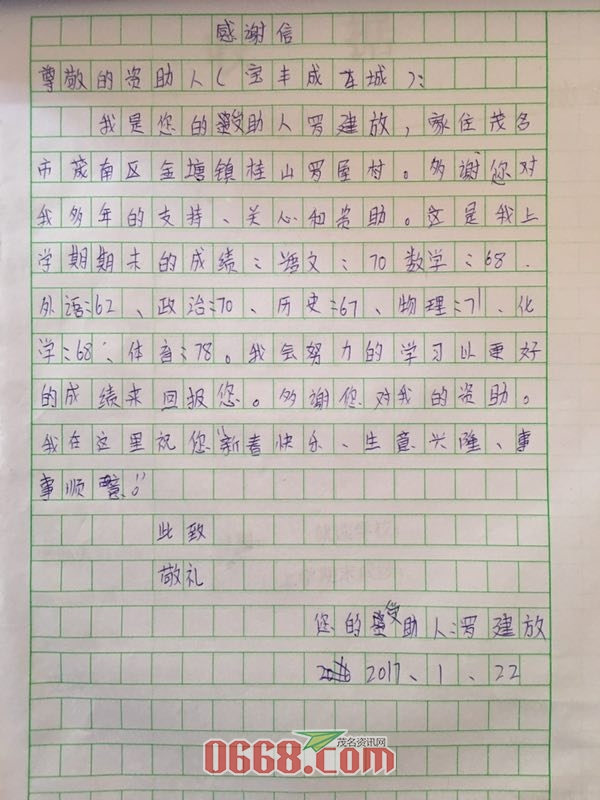 感谢信
尊敬的资助人(宝丰成车城):
我是您的受助人罗建放,家住茂名
市茂南区金塘镇桂山罗屋村。多谢您对
我多年的支持、关心和资助。这是我上
学期期末的成绩:语文:70数学:68、
外语:62、政治:70、历史:67、物理:71、化
学:68、体育:78。我会努力的学习以更好
的成绩来回报您。多谢您对我的资助。
我在这里祝您“新春快乐、生意兴隆、事
事顺意。”
此致
敬礼
您的受助人:罗建放
2017、1、22
茂名资讯网
0668.com